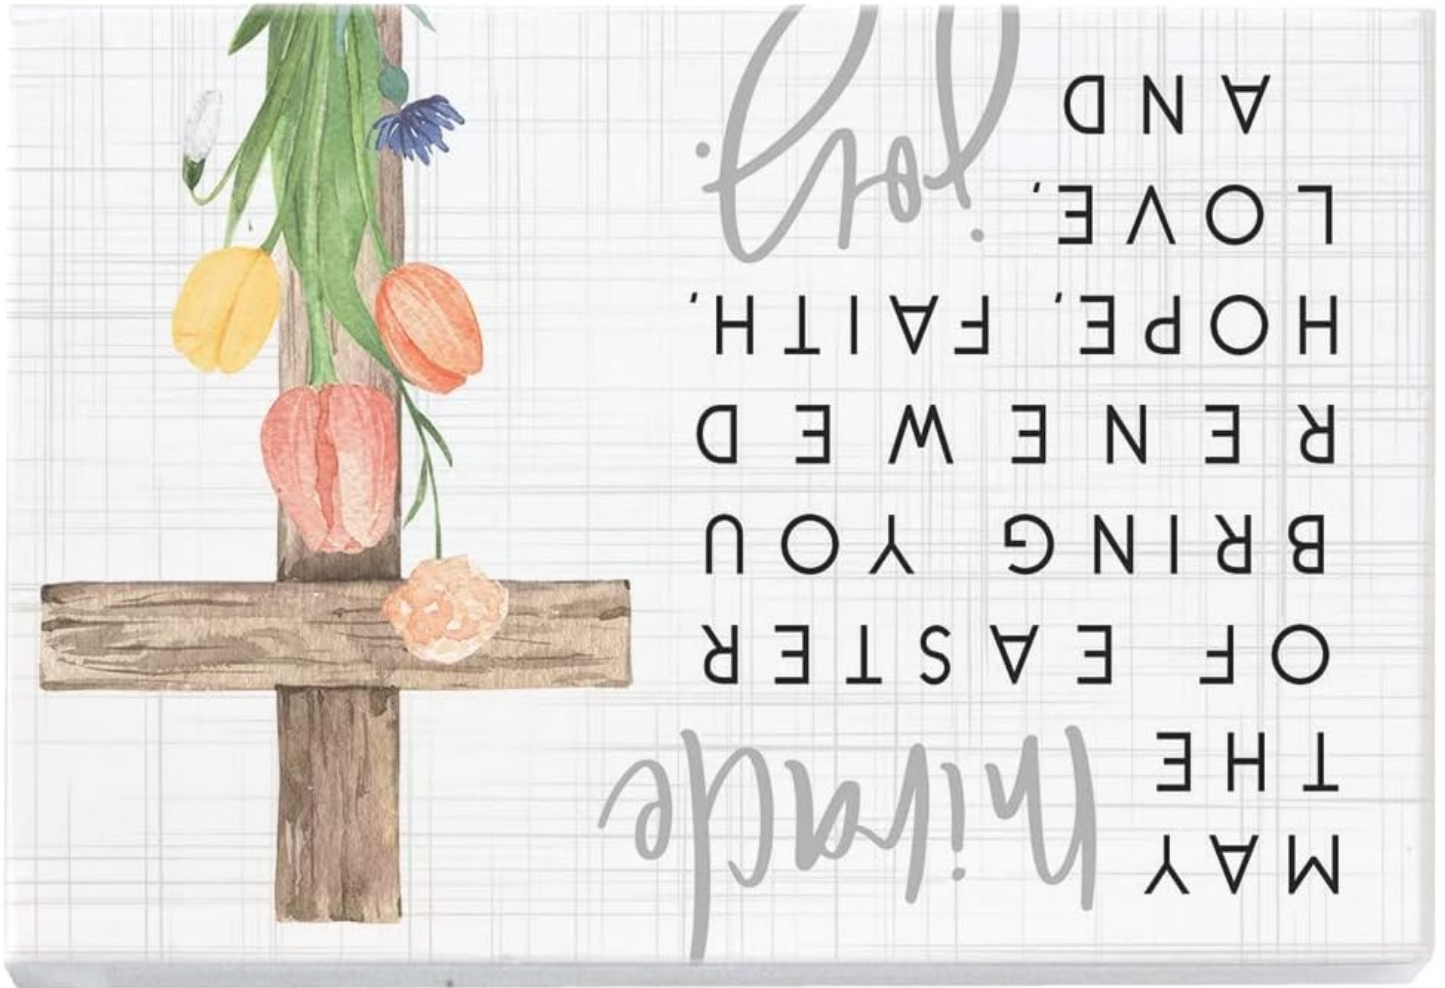 MAY
THE miracle
OF EASTER
BRING YOU
RENEWED
HOPE, FAITH,
LOVE,
AND joy.